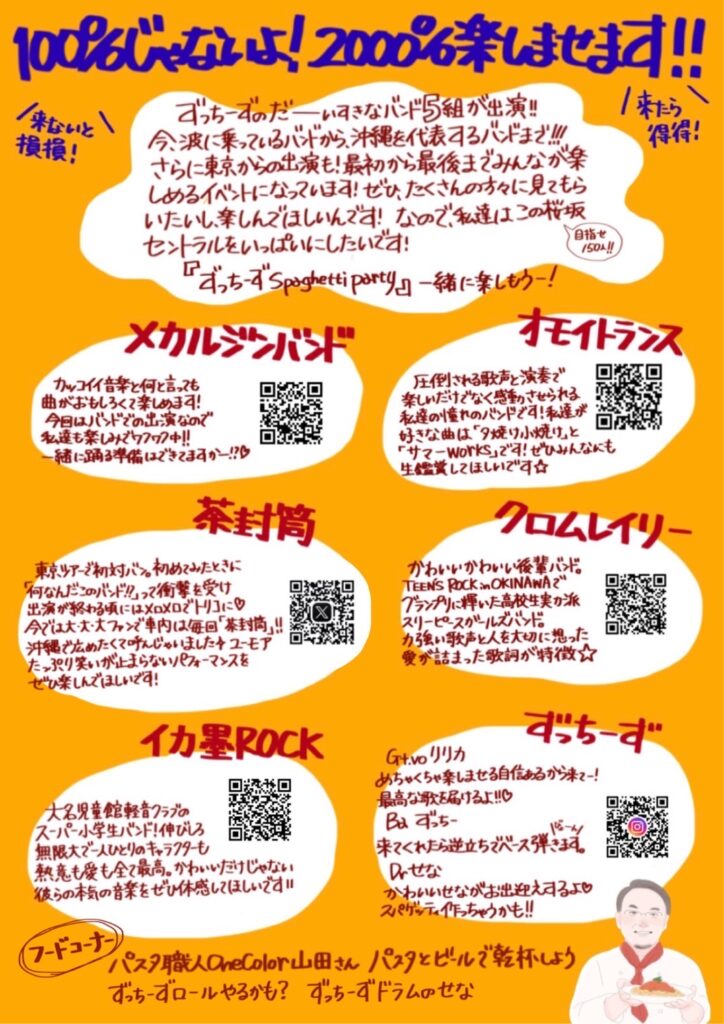 100%じゃないよ! 2000%楽しませます!!
来ないと
損損!
来たら
得得!
ずっちーずのだーーいすきなバンド5組が出演!!
今、波に乗っているバンドから、沖縄を代表するバンドまで!!!
さらに東京からの出演も!最初から最後までみんなが楽
しめるイベントになっています!ぜひ、たくさんの方々に見てもら
いたいし、楽しんでほしいんです! なので、私達はこの桜坂
セントラルをいっぱいにしたいです!
目指せ
150人!!
『ずっちーずSpaghetti party』一緒に楽しもうー!
メカルジンバンド
カッコイイ音楽と何と言っても
曲がおもしろくて楽しめます!
今回はバンドでの出演なので
私達も楽しみでワクワク中!!
一緒に踊る準備はできてますかー!?♡
オモイトランス
圧倒される歌声と演奏で
楽しいだけでなく感動させられる
私達の憧れのバンドです!私達が
好きな曲は「夕焼け小焼け」と
「サマーworks」です!ぜひみんなにも
生鑑賞してほしいです☆
茶封筒
東京ツアーで初対バン。初めてみたときに
「何なんだこのバンド!?」って衝撃を受け
出演が終わる頃にはメロメロでトリコに♡
今では大・大・大ファンで車内は毎回「茶封筒」!!
沖縄で広めたくて呼んじゃいました ユーモア
たっぷり笑いが止まらないパフォーマンスを
ぜひ楽しんでほしいです!
クロムレイリー
かわいいかわいい後輩バンド。
TEEN'S ROCK in OKINAWAで
グランプリに輝いた高校生実力派
スリーピースガールズバンド。
力強い歌声と人を大切に想った
愛が詰まった歌詞が特徴☆
イカ墨ROCK
大名児童館軽音クラブの
スーパー小学生バンド!伸びしろ
無限大で一人ひとりのキャラクターも
熱意も愛も全て最高。かわいいだけじゃない
彼らの本気の音楽をぜひ体感してほしいです!!
ずっちーず
Gt.vo リリカ
めちゃくちゃ楽しませる自信あるから来てー!
最高な歌を届けるよ!!♡
Ba ずっちー
来てくれたら逆立ちでベース弾きます。
Dr せな
かわいいせながお出迎えするよ♡
スパゲッティ作っちゃうかも!!
フードコーナー
パスタ職人OneColor山田さん パスタとビールで乾杯しよう
ずっちーずロールやるかも? ずっちーずドラムのせな